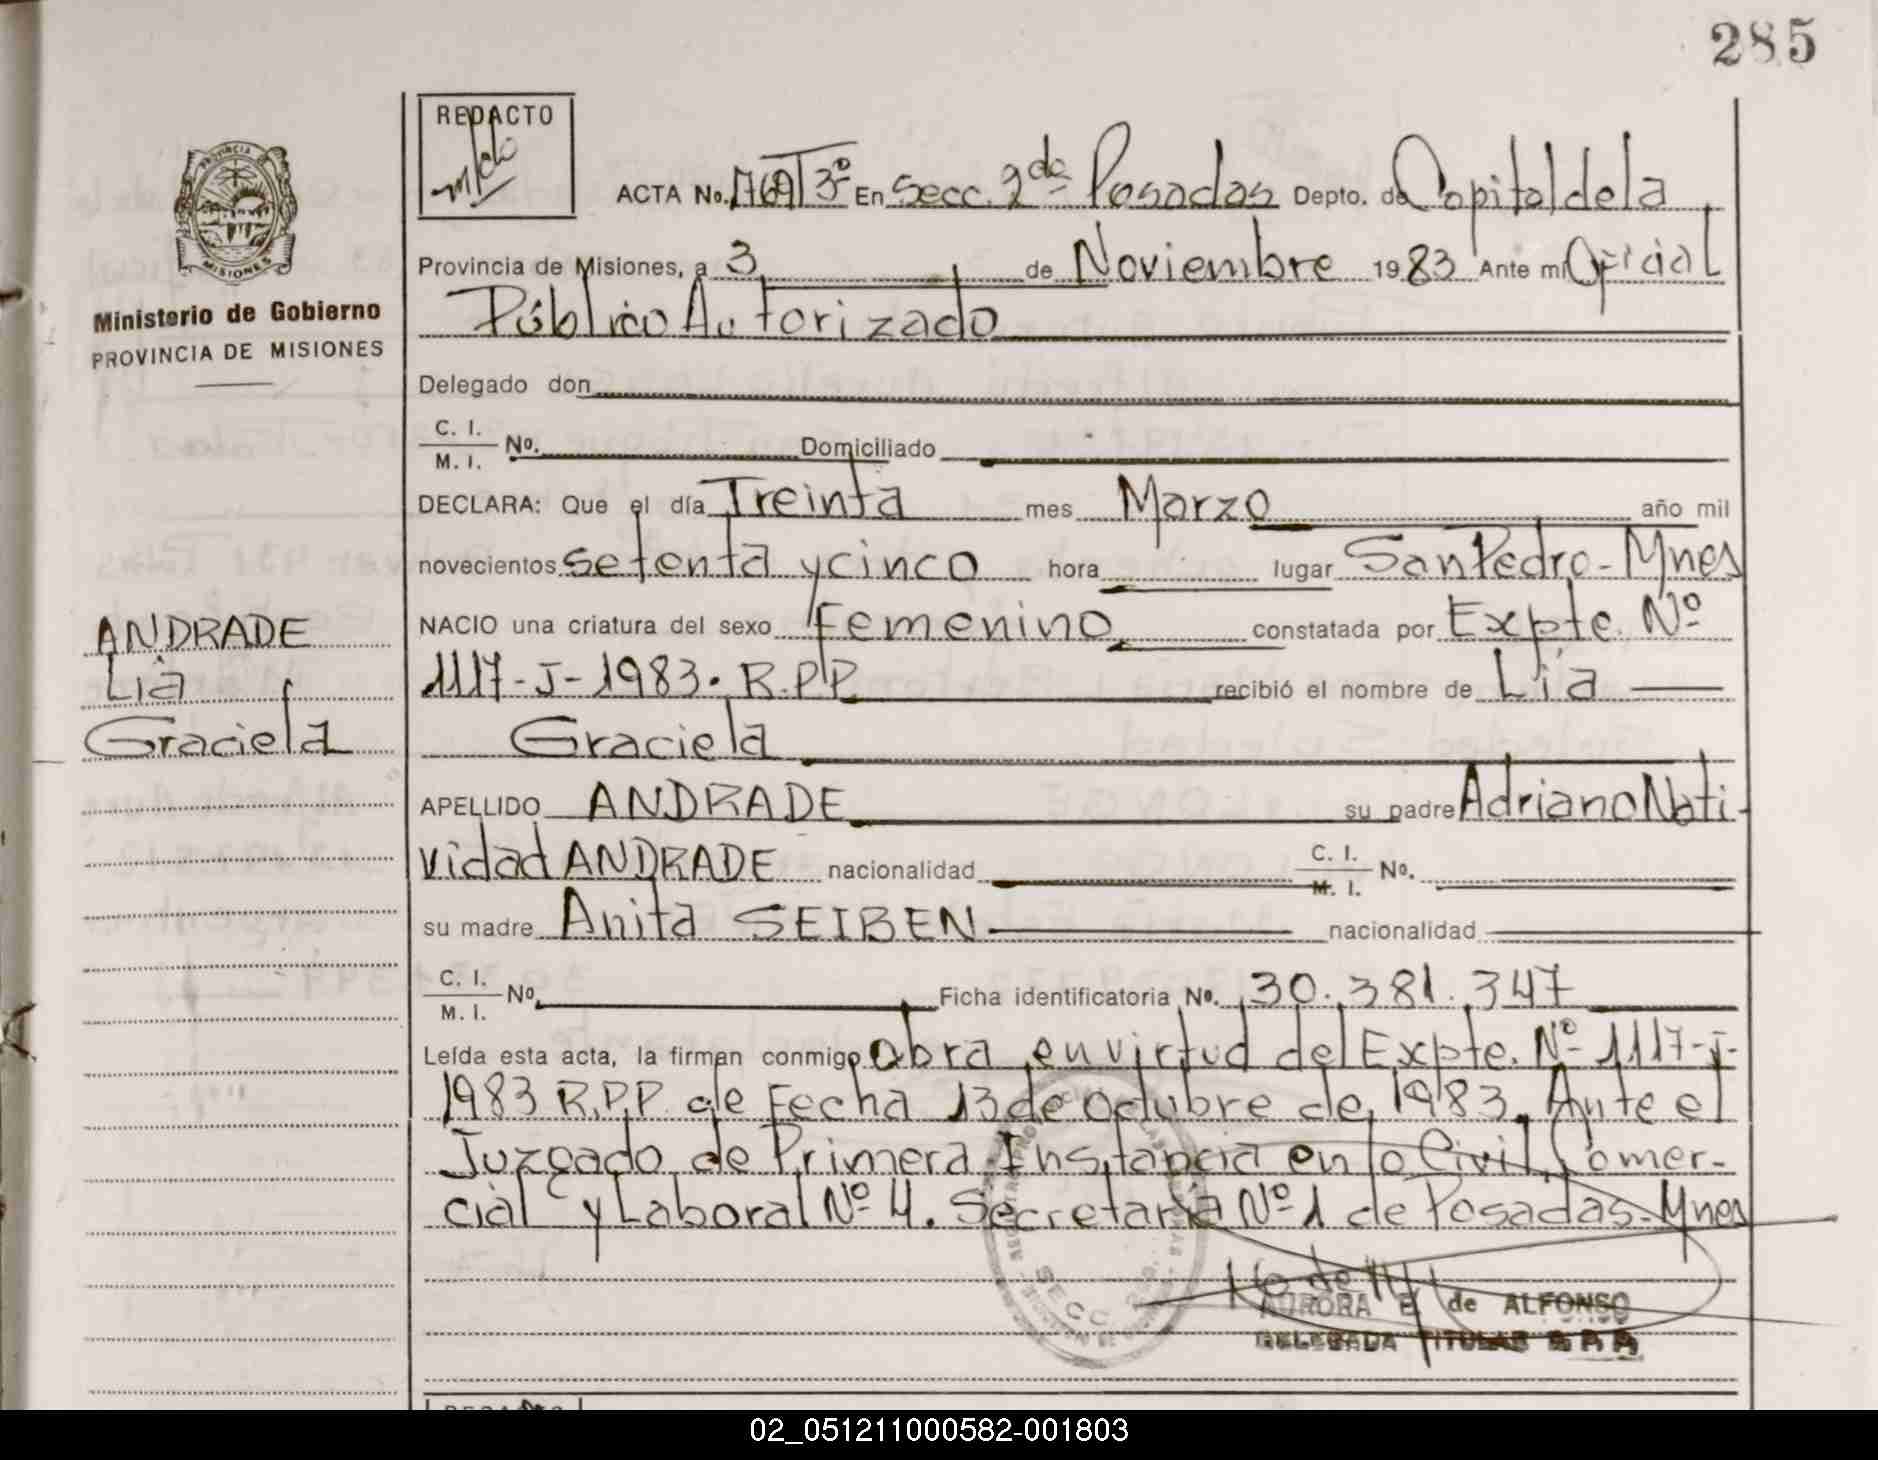 285
REDACTO
PROVINCIA DE
MISIONES
Ministerio de Gobierno
PROVINCIA DE MISIONES
ACTA No. 1769 T 3º En Secc. 2da Posadas Depto. de Capital de la
Provincia de Misiones, a 3 de Noviembre 1983 Ante mi Oficial
Público Autorizado
Delegado don
C. I.
M. I. No. Domiciliado
DECLARA: Que el día Treinta mes Marzo año mil
novecientos setenta y cinco hora lugar San Pedro - Mnes
ANDRADE
Lia
Graciela
NACIO una criatura del sexo Femenino constatada por Expte. Nº
1117-J-1983. R.P.P. recibió el nombre de Lia
Graciela
APELLIDO ANDRADE su padre Adriano Nati-
vidad ANDRADE nacionalidad C. I. M. I. No.
su madre Anita SEIBEN nacionalidad
C. I.
M. I. No. Ficha identificatoria No. 30.381.347
Leída esta acta, la firman conmigo obra en virtud del Expte. Nº 1117-J-
1983 R.P.P. de Fecha 13 de octubre de 1983. Ante el
Juzgado de Primera Instancia en lo Civil, Comer-
cial y Laboral Nº 4. Secretaría Nº 1 de Posadas-Mnes
SECC.
AURORA E. de ALFONSO
DELEGADA TITULAR R P P
02_051211000582-001803